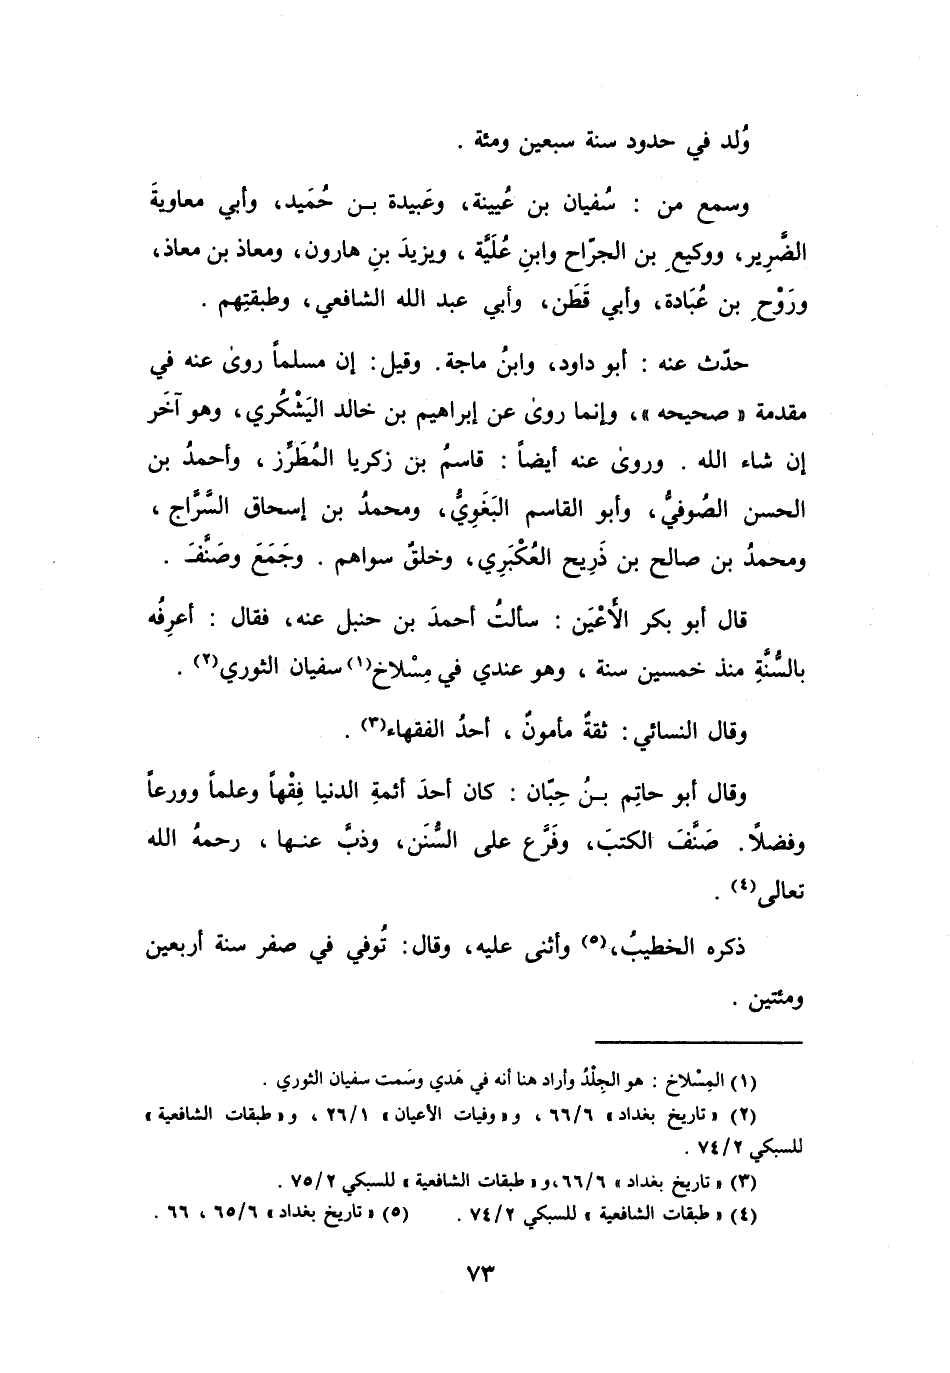 وُلد في حدود سنة سبعين ومئة .
وسمع من : سُفيان بن عُيينة، وعَبيدة بن حُمَيد، وأبي معاويةَ
الضَّرِير، ووكيعِ بن الجرّاح وابنِ عُلَيَّة ، ويزيدَ بنِ هارون، ومعاذ بن معاذ،
ورَوْحِ بن عُبَادة، وأبي قَطَن، وأبي عبد الله الشافعي، وطبقتِهم .
حدّث عنه : أبو داود، وابنُ ماجة. وقيل: إن مسلماً روىٰ عنه في
مقدمة « صحيحه »، وإنما روىٰ عن إبراهيم بن خالد اليَشْكُري، وهو آخَر
إن شاء الله . وروىٰ عنه أيضاً : قاسمُ بن زكريا المُطَرِّز ، وأحمدُ بن
الحسن الصُوفيُّ، وأبو القاسم البَغَويُّ، ومحمدُ بن إسحاق السَّرَّاج ،
ومحمدُ بن صالح بن ذَرِيح العُكْبَرِي، وخلقٌ سواهم . وجَمَعَ وصَنَّفَ .
قال أبو بكر الأَعْيَن : سألتُ أحمدَ بن حنبل عنه، فقال : أعرِفُه
بالسُّنَّةِ منذ خمسين سنة ، وهو عندي في مِسْلاخ(١) سفيان الثوري(٢) .
وقال النسائي: ثقةٌ مأمونٌ ، أحدُ الفقهاء(٣) .
وقال أبو حاتِم بنُ حِبّان : كان أحدَ أئمةِ الدنيا فِقْهاً وعلماً وورعاً
وفضلًا. صَنَّفَ الكتبَ، وفَرَّع على السُّنَن، وذبَّ عنها ، رحمهُ الله
تعالى(٤) .
ذكره الخطيبُ،(٥) وأثنى عليه، وقال: تُوفي في صفر سنة أربعين
ومئتين .
(١) المِسْلاخ : هو الجِلْدُ وأراد هنا أنه في هَدي وسَمت سفيان الثوري .
(٢) « تاريخ بغداد » ٦٦/٦ ، و« وفيات الأعيان » ٢٦/١ ، و« طبقات الشافعية »
للسبكي ٧٤/٢ .
(٣) « تاريخ بغداد » ٦٦/٦،و« طبقات الشافعية » للسبكي ٧٥/٢ .
(٤) « طبقات الشافعية » للسبكي ٧٤/٢ . (٥) « تاريخ بغداد » ٦٥/٦ ، ٦٦ .
٧٣